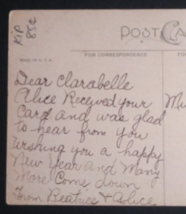 KIP
85¢
POST CA
FOR CORRESPONDENCE
MADE IN U.S.A.
Dear Clarabelle
Alice Received your
Card and was glad
to hear from you
Wishing you a happy
New Year and Many
More Come down
From Beatrice & Alice